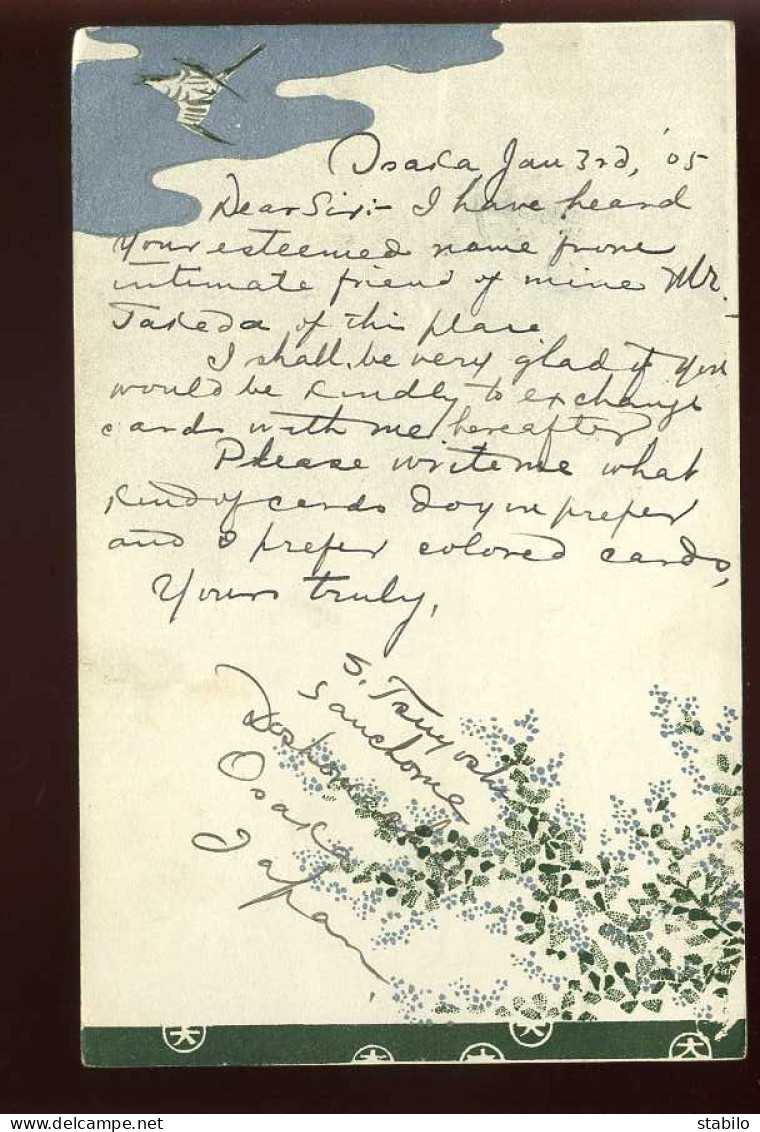 Osaka Jan 3rd, '05
Dear Sir:- I have heard
your esteemed name from
intimate friend of mine Mr.
Takeda of this place
I shall be very glad if you
would be kindly to exchange
cards with me hereafter
Please write me what
kind of cards do you prefer
and I prefer colored cards,
Yours truly,
S. Tsuyoshi
Sanchome
Osaka
Japan
大 大 大 大 大
stabilo